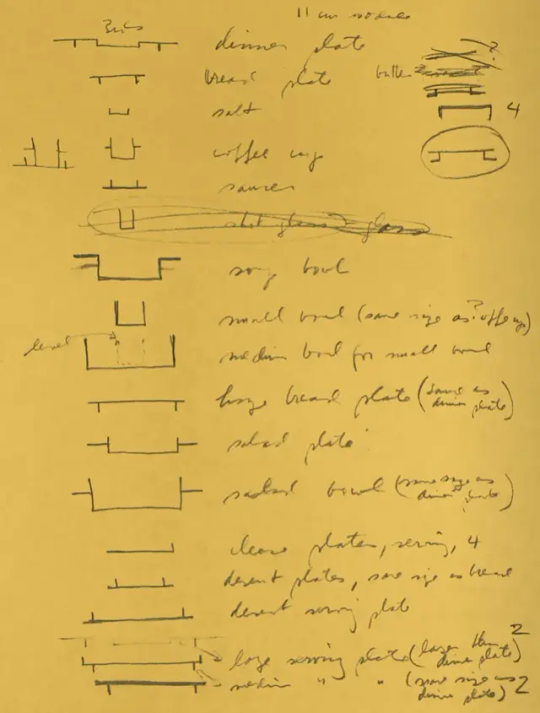 11 cm module
dinner plate
bread plate
butter
salt
4
coffee cup
saucer
shot glass? glass
soup bowl
small bowl (same size as? coffee cup)
level
medium bowl for small bowl
large bread plate (same as dinner plate)
salad plate
salad bowl (same size as dinner plate)
plates, serving, 4
desert plates, same size as bread
desert serving plate
large serving plate (larger than dinner plate) 2
medium " " (same size as dinner plate) 2